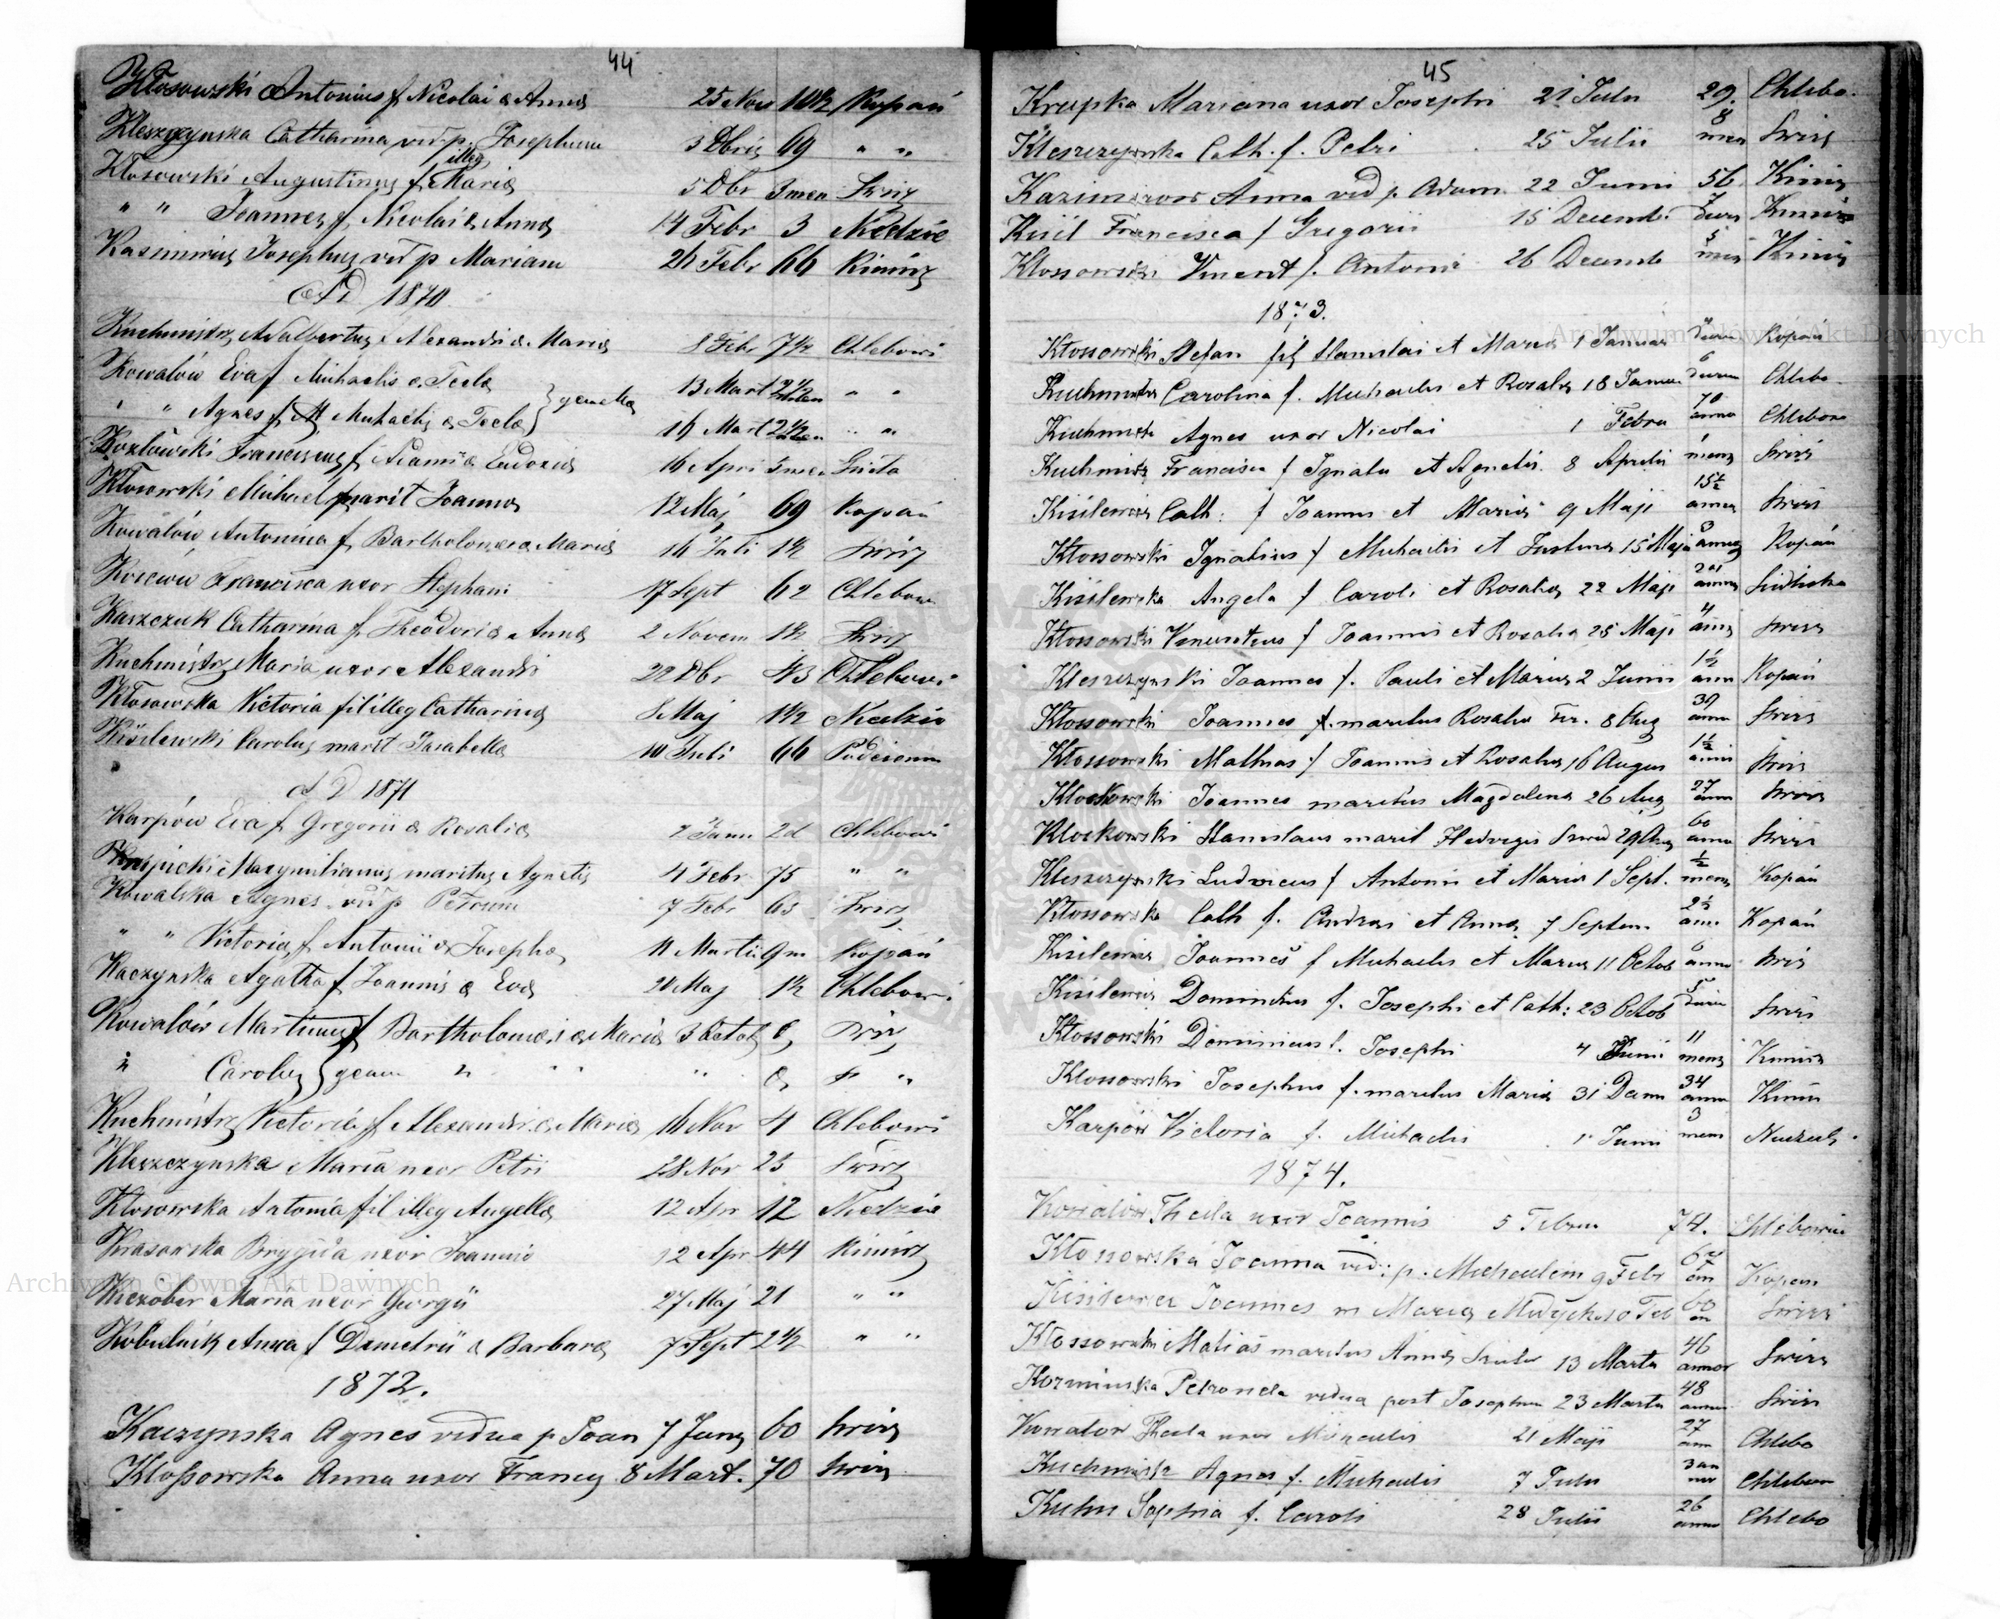 44
Kłosowski Antonius f. Nicolai & Anna 25 Nov 1½ Kopań
Kleszczynska Catharina vid. p. Josephum 3 Dbris 69 " "
Kłosowski Augustinus f. illeg Maria 5 Dbr 3 men Swirz
" " Joannes f. Nicolai & Anna 14 Febr 3 Niedzie
Kasimirus Josephus vid p Mariam 26 Febr 66 Kimirz
AD 1870
Kuchmistrz Adalbertus Alexandri & Maria 8 Febr 7½ Chlebowi
Kowalów Eva f Michaelis & Tecla 13 Mart 2½ " "
" " Agnes f. Michaelis & Tecla } gemella 16 Mart 2½ " "
Kozłowski Franciscus f. Adami & Eudoxia 16 Apri
Kłosowski Michael marit Joanna 12 Maj 69 Kopań
Kowalów Antonina f. Bartholomaei & Maria 16 Juli 1½ Swirz
Francisca uxor Stephani 17 Sept 62 Chlebow
Karszczuk Catharina f. Theodori & Anna 2 Novem 1½ Swirz
Kuchmistrz Maria uxor Alexandri 22 Dbr 43 Chlebowi
Kłosowska Victoria fil illeg Catharina 8 Maj 1½ Niedzie
Kisilewski Carolus marit Isabella 10 Juli 66
AD 1871
Karpów Eva f Gregorii & Rosalia 2 Janu 2d Chlebowi
Maxymilianus maritus Agnetis 4 Febr 75 " "
Kowalska Agnes vid p Petrum 7 Febr 63 Swirz
" " Victoria f Antonii & Josepha 11 Martii 9m Kopań
Kaczynska Agatha f Joannis & Eva 20 Maj 1½ Chlebowi
Kowalów Martinus f Bartholomaei & Maria 3 Octob Swirz
" Carolus } gem " " " " "
Kuchmistrz Victoria f Alexandri & Maria 16 Nov 4 Chlebowi
Kleszczynska Maria uxor Petri 28 Nov 23 Swirz
Kłosowska Antonia fil illeg Angella 12 Apr 12 Niedzie
Krasowska Brygida uxor Joannis 12 Apr 44 Kimirz
Maria uxor Georgii 27 Maj 21 " "
Kobielnik Anna f Demetrii & Barbara 7 Sept 2½ " "
1872.
Kaczynska Agnes vidua p Joan 7 Jan 60 Swirz
Kłossowska Anna uxor Francis 8 Mart. 70 Swirz
45
Krupka Mariana uxor Josephi 21 Julii 29. Chlebo.
Kleszczynska Cath. f. Petri 25 Julii 8 men Swirz
Anna vid p. Adam 22 Junii 56 Kimir
Kisil Francisca f Gregorii 15 Decemb Kimir
Klossowski Vincent f. Antoni 26 Decemb 5 men Kimir
1873.
Kłossowski Stefan fil Stanislai et Maria 1 Januar Kopań
Kuchmistrz Carolina f. Michaelis et Rosalia 18 Januar 6 dierum Chlebo
Kuchmistrz Agnes uxor Nicolai 1 Febru 70 anno Chlebow
Kuchmistrz Francisca f Ignatii et Agnetis 8 Aprilis mens Swirz
Kisilewicz Cath: f Joannis et Maria 9 Maji 15½ annor Swirz
Kłossowski Ignatius f Michaelis et Justina 15 Maja Kopań
Kisilewska Angela f Caroli et Rosalia 22 Maji
Kłossowski Vincentius f Joannis et Rosalia 25 Maji 4 Swirz
Kleszczynski Joannes f. Pauli et Maria 2 Junii 1½ ann Kopań
Kłossowski Joannes f. maritus Rosalia Fer. 8 Aug 39 anno Swirz
Kłossowski Mathias f Joannis et Rosalia 16 Augus 1½ anni Swirz
Kłoskowski Joannes maritus Magdalena 26 Aug 27 ann Swirz
Kloskowski Stanislaus marit Hedvigis 29 Aug 60 anno Swirz
Kleszczynski Ludovicus f Antoni et Maria 1 Sept. ½ mens Kopań
Kłossowska Cath f. Andrea et Anna 7 Septem 2½ ann. Kopań
Kisilewicz Joannes f Michaelis et Maria 11 Octob 6 anno Swirz
Kisilewicz Dominikus f. Josephi et Cath: 23 Octob Swirz
Kłossowski Dominicus f. Josephi 4 Junii 11 mens Kimirz
Klossowski Josephus f. maritus Maria 31 34 anno Kimir
Karpów Victoria f. Michaelis 1 Junii 3 mens
1874.
Kowalow Thecla uxor Joannis 5 Febru 74. Chlebowic
Kłossowska Joanna vid: p. Michaelem 9 Febr Kopan
Kisilewicz Joannes m Maria Febr 60 an Swirz
Kłossowski Matias maritus Anna 13 Marta 46 annor Swirz
Petronela vidua post Josephum 23 Marta 48 annor Swirz
Kowalow Thecla uxor Michaelis 21 Maji 27 ann Chlebo
Kuchmistrz Agnes f. Michaelis 7 Julii Chlebow
Kuhn Sophia f. Caroli 28 Julii 26 anno Chlebo
Archiwum Główne Akt Dawnych
Archiwum Główne Akt Dawnych